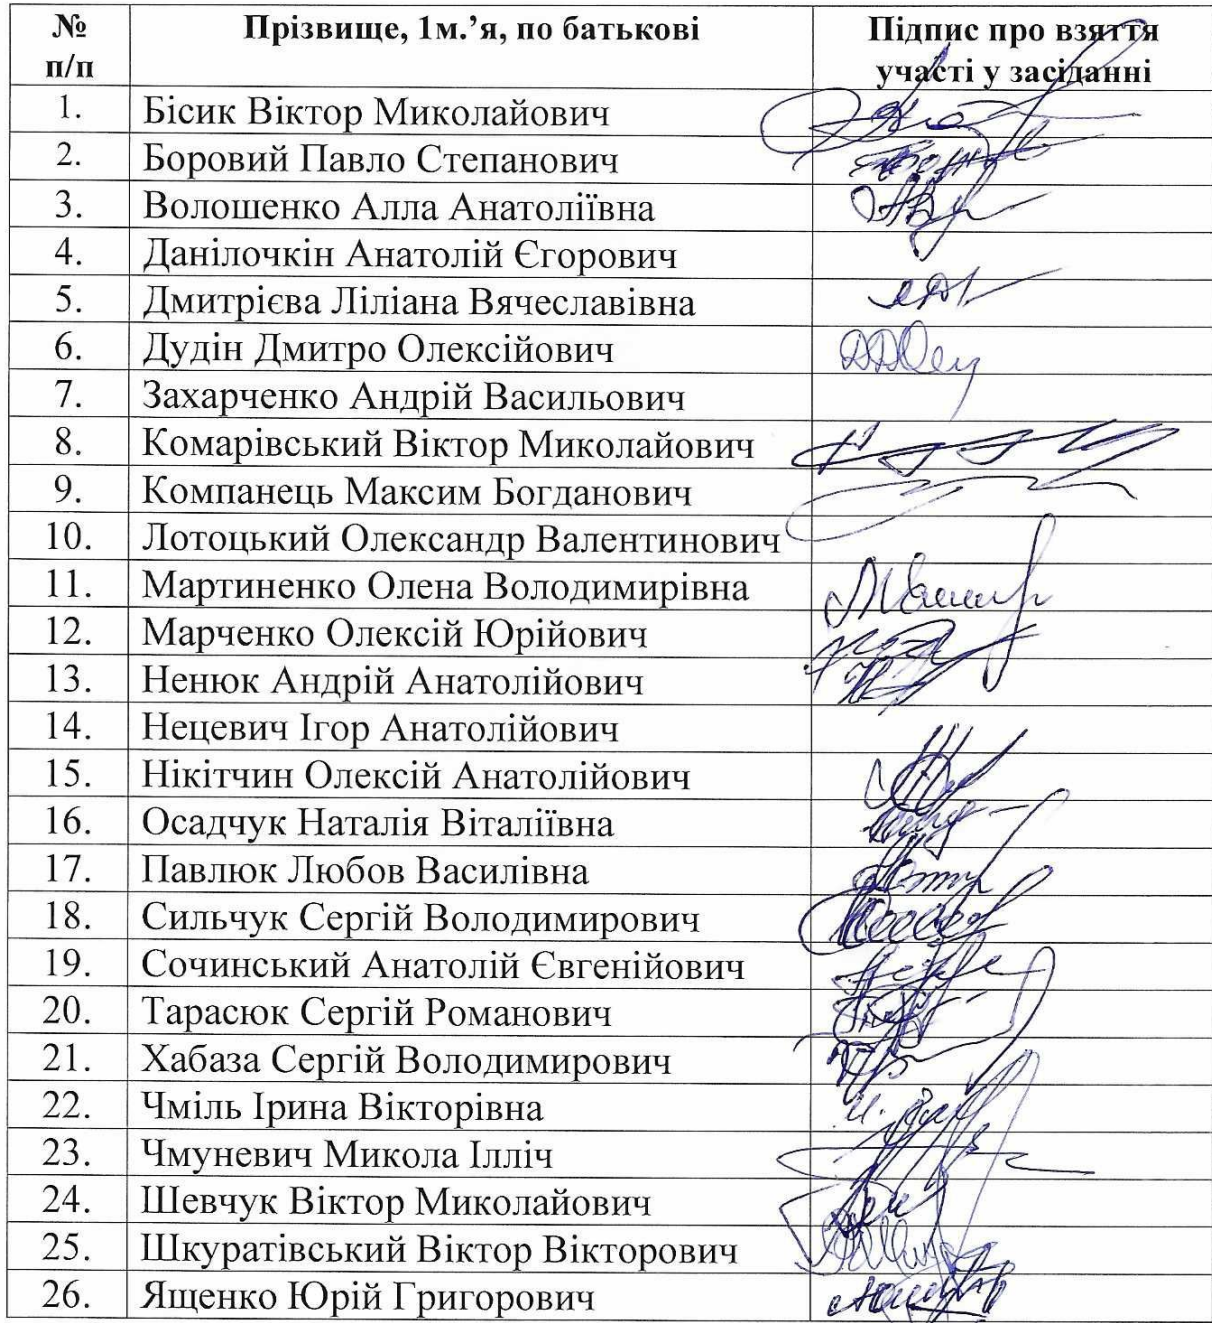 № п/п Прізвище, 1м.’я, по батькові Підпис про взяття участі у засіданні
1. Бісик Віктор Миколайович
2. Боровий Павло Степанович
3. Волошенко Алла Анатоліївна
4. Данілочкін Анатолій Єгорович
5. Дмитрієва Ліліана Вячеславівна
6. Дудін Дмитро Олексійович
7. Захарченко Андрій Васильович
8. Комарівський Віктор Миколайович
9. Компанець Максим Богданович
10. Лотоцький Олександр Валентинович
11. Мартиненко Олена Володимирівна
12. Марченко Олексій Юрійович
13. Ненюк Андрій Анатолійович
14. Нецевич Ігор Анатолійович
15. Нікітчин Олексій Анатолійович
16. Осадчук Наталія Віталіївна
17. Павлюк Любов Василівна
18. Сильчук Сергій Володимирович
19. Сочинський Анатолій Євгенійович
20. Тарасюк Сергій Романович
21. Хабаза Сергій Володимирович
22. Чміль Ірина Вікторівна
23. Чмуневич Микола Ілліч
24. Шевчук Віктор Миколайович
25. Шкуратівський Віктор Вікторович
26. Ященко Юрій Григорович